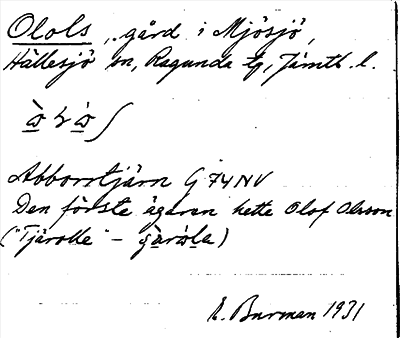 Olols, gård i Mjösjö,
Hällesjö sn, Ragunda tg, Jämtl. l.
Abborrtjärn G 74 NV
Den förste ägaren hette Olof Olsson
("Tjärolle" –
E. Burman 1931